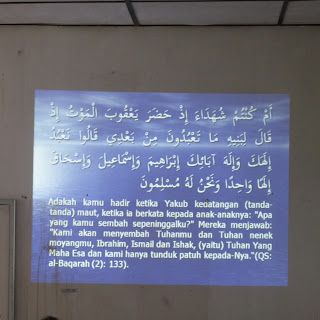 أَمْ كُنْتُمْ شُهَدَاءَ إِذْ حَضَرَ يَعْقُوبَ الْمَوْتُ إِذْ
قَالَ لِبَنِيهِ مَا تَعْبُدُونَ مِنْ بَعْدِي قَالُوا نَعْبُدُ
إِلَهَكَ وَإِلَهَ آبَائِكَ إِبْرَاهِيمَ وَإِسْمَاعِيلَ وَإِسْحَاقَ
إِلَهًا وَاحِدًا وَنَحْنُ لَهُ مُسْلِمُونَ
Adakah kamu hadir ketika Yakub kedatangan (tanda-
tanda) maut, ketika ia berkata kepada anak-anaknya: "Apa
yang kamu sembah sepeninggalku?" Mereka menjawab:
"Kami akan menyembah Tuhanmu dan Tuhan nenek
moyangmu, Ibrahim, Ismail dan Ishak, (yaitu) Tuhan Yang
Maha Esa dan kami hanya tunduk patuh kepada-Nya."(QS:
al-Baqarah (2): 133).